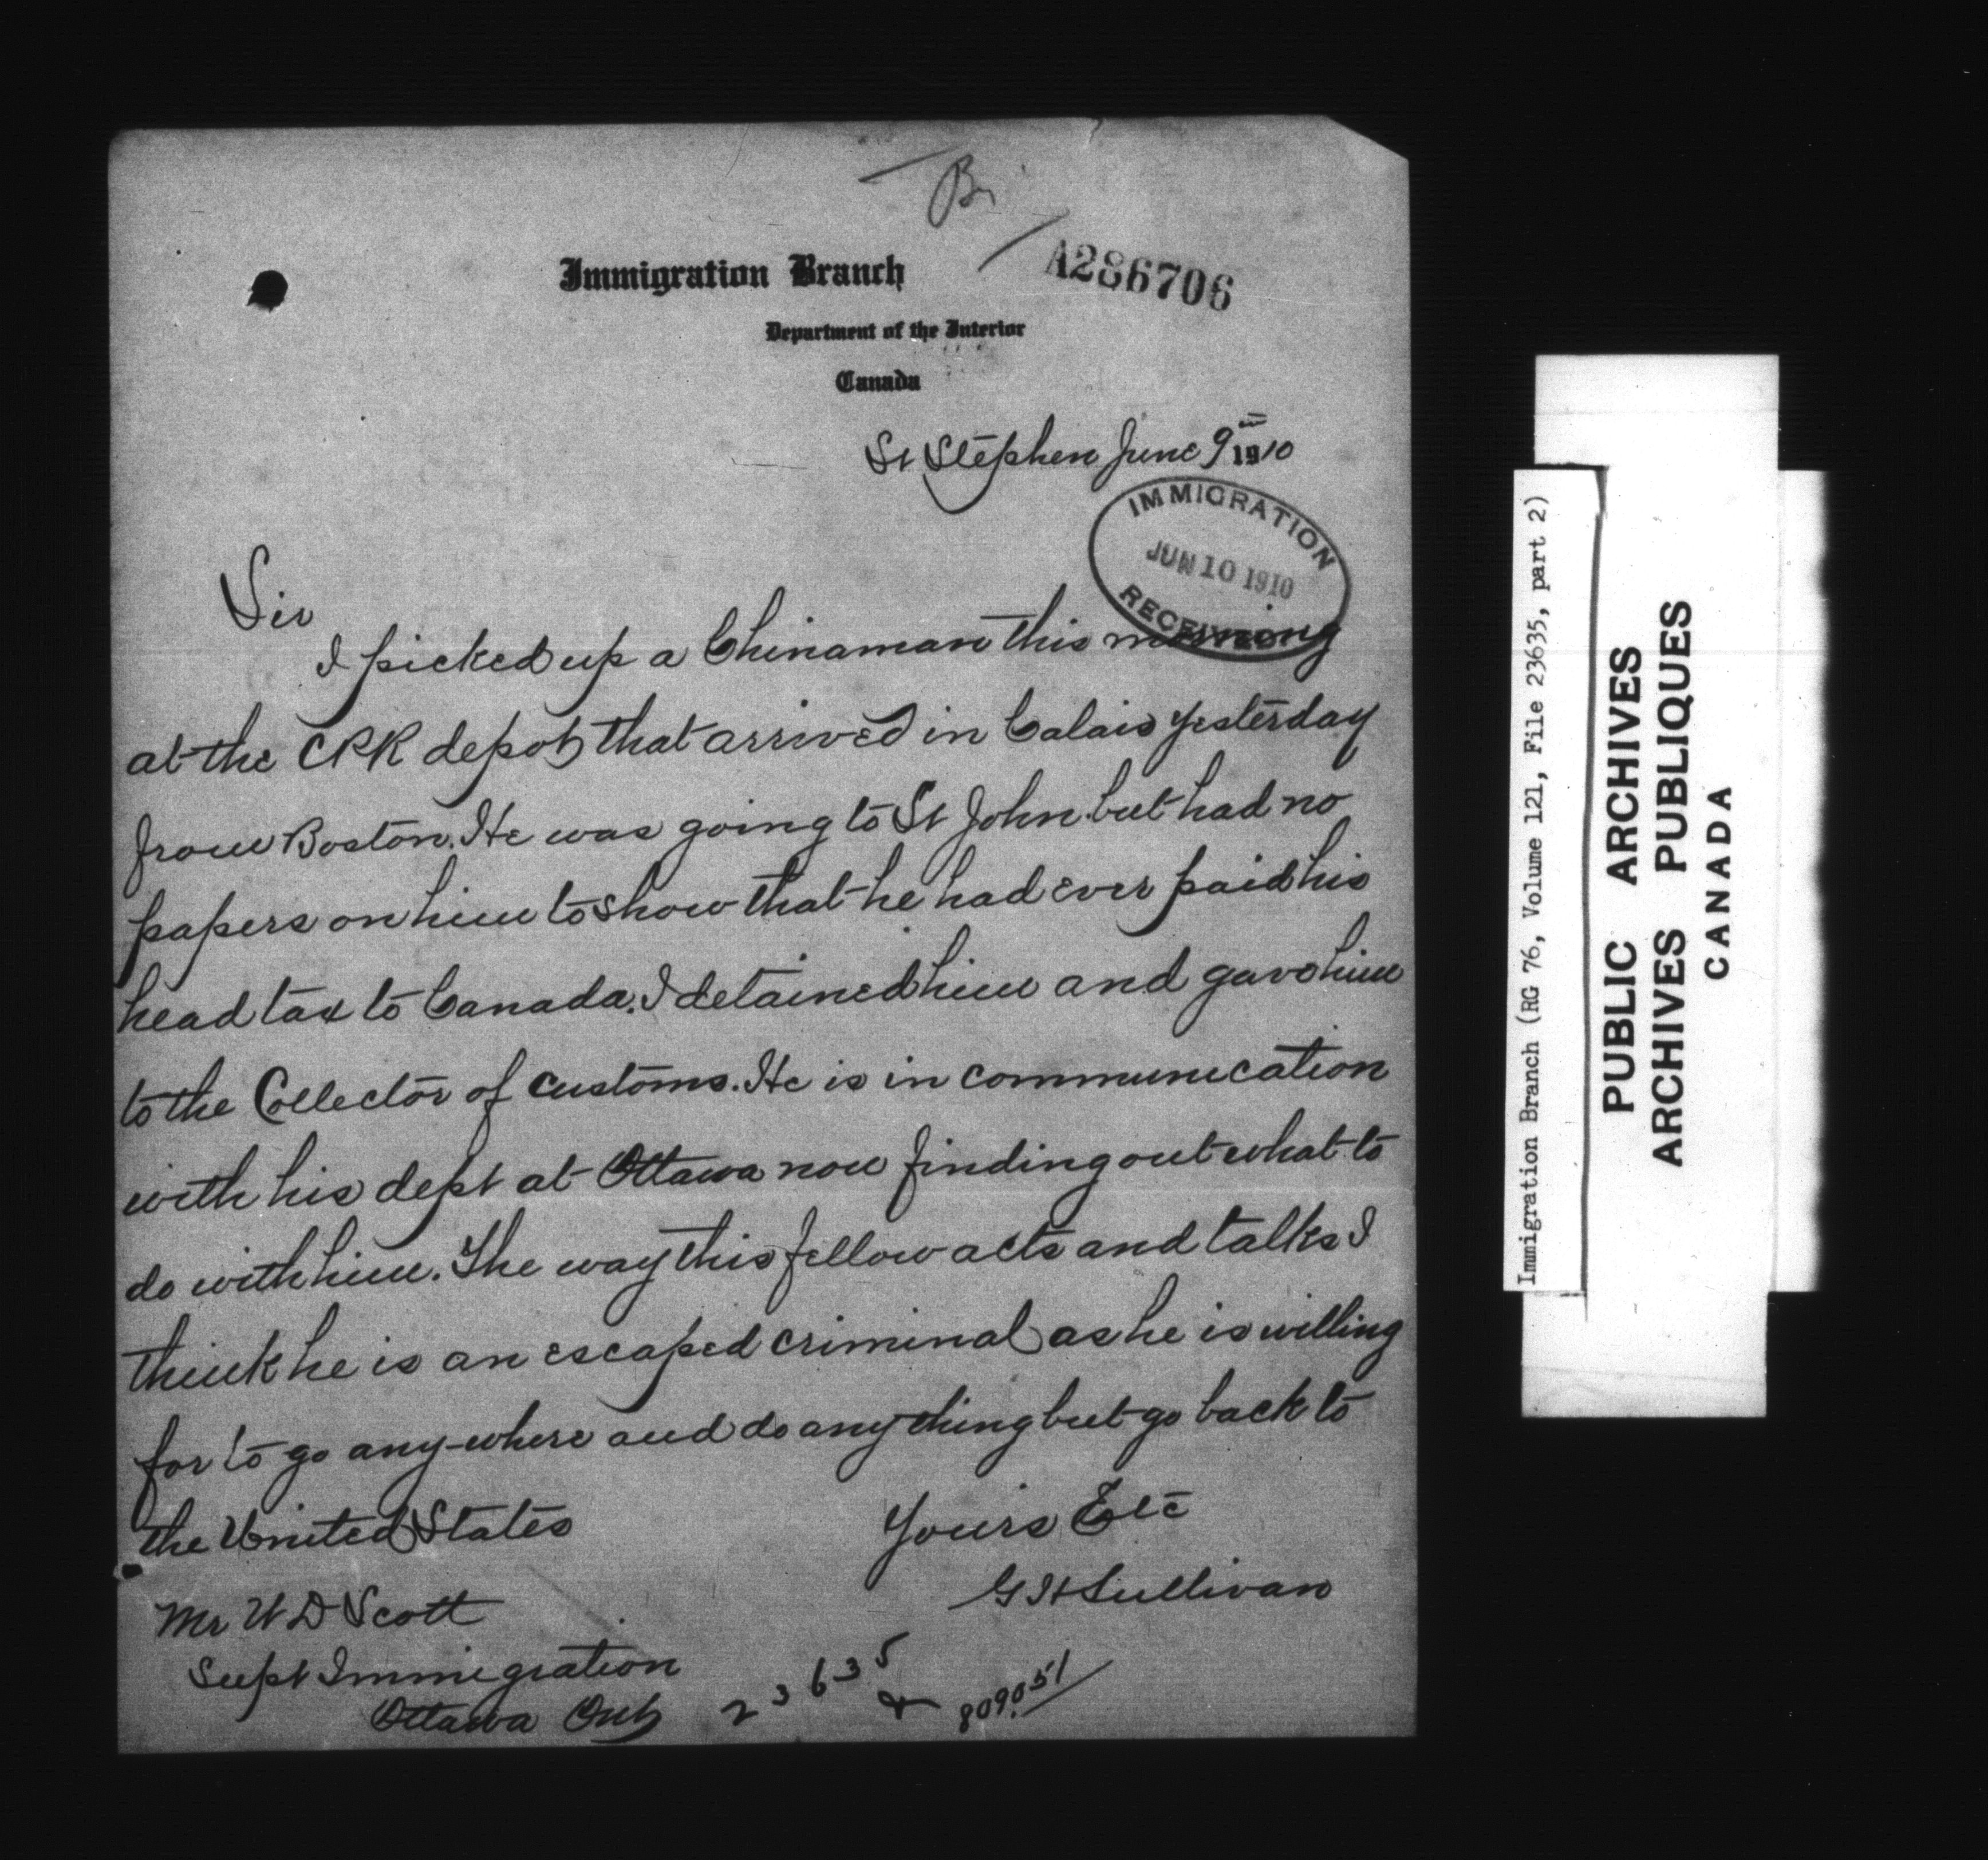 Br
A286706
Immigration Branch
Department of the Interior
Canada
St Stephen June 9th 1910
IMMIGRATION
JUN 10 1910
RECEIVED
Sir
I picked up a Chinaman this morning
at the CPR depot that arrived in Calais yesterday
from Boston. He was going to St John but had no
papers on him to show that he had ever paid his
head tax to Canada. I detained him and gave him
to the Collector of Customs. He is in communication
with his dept at Ottawa now finding out what to
do with him. The way this fellow acts and talks I
think he is an escaped criminal as he is willing
for to go any-where and do anything but go back to
the United States
Yours Etc
G H Sullivan
Mr W D Scott
Supt Immigration
Ottawa Ont
23635
& 809051
Immigration Branch (RG 76, Volume 121, File 23635, part 2)
PUBLIC ARCHIVES
ARCHIVES PUBLIQUES
CANADA